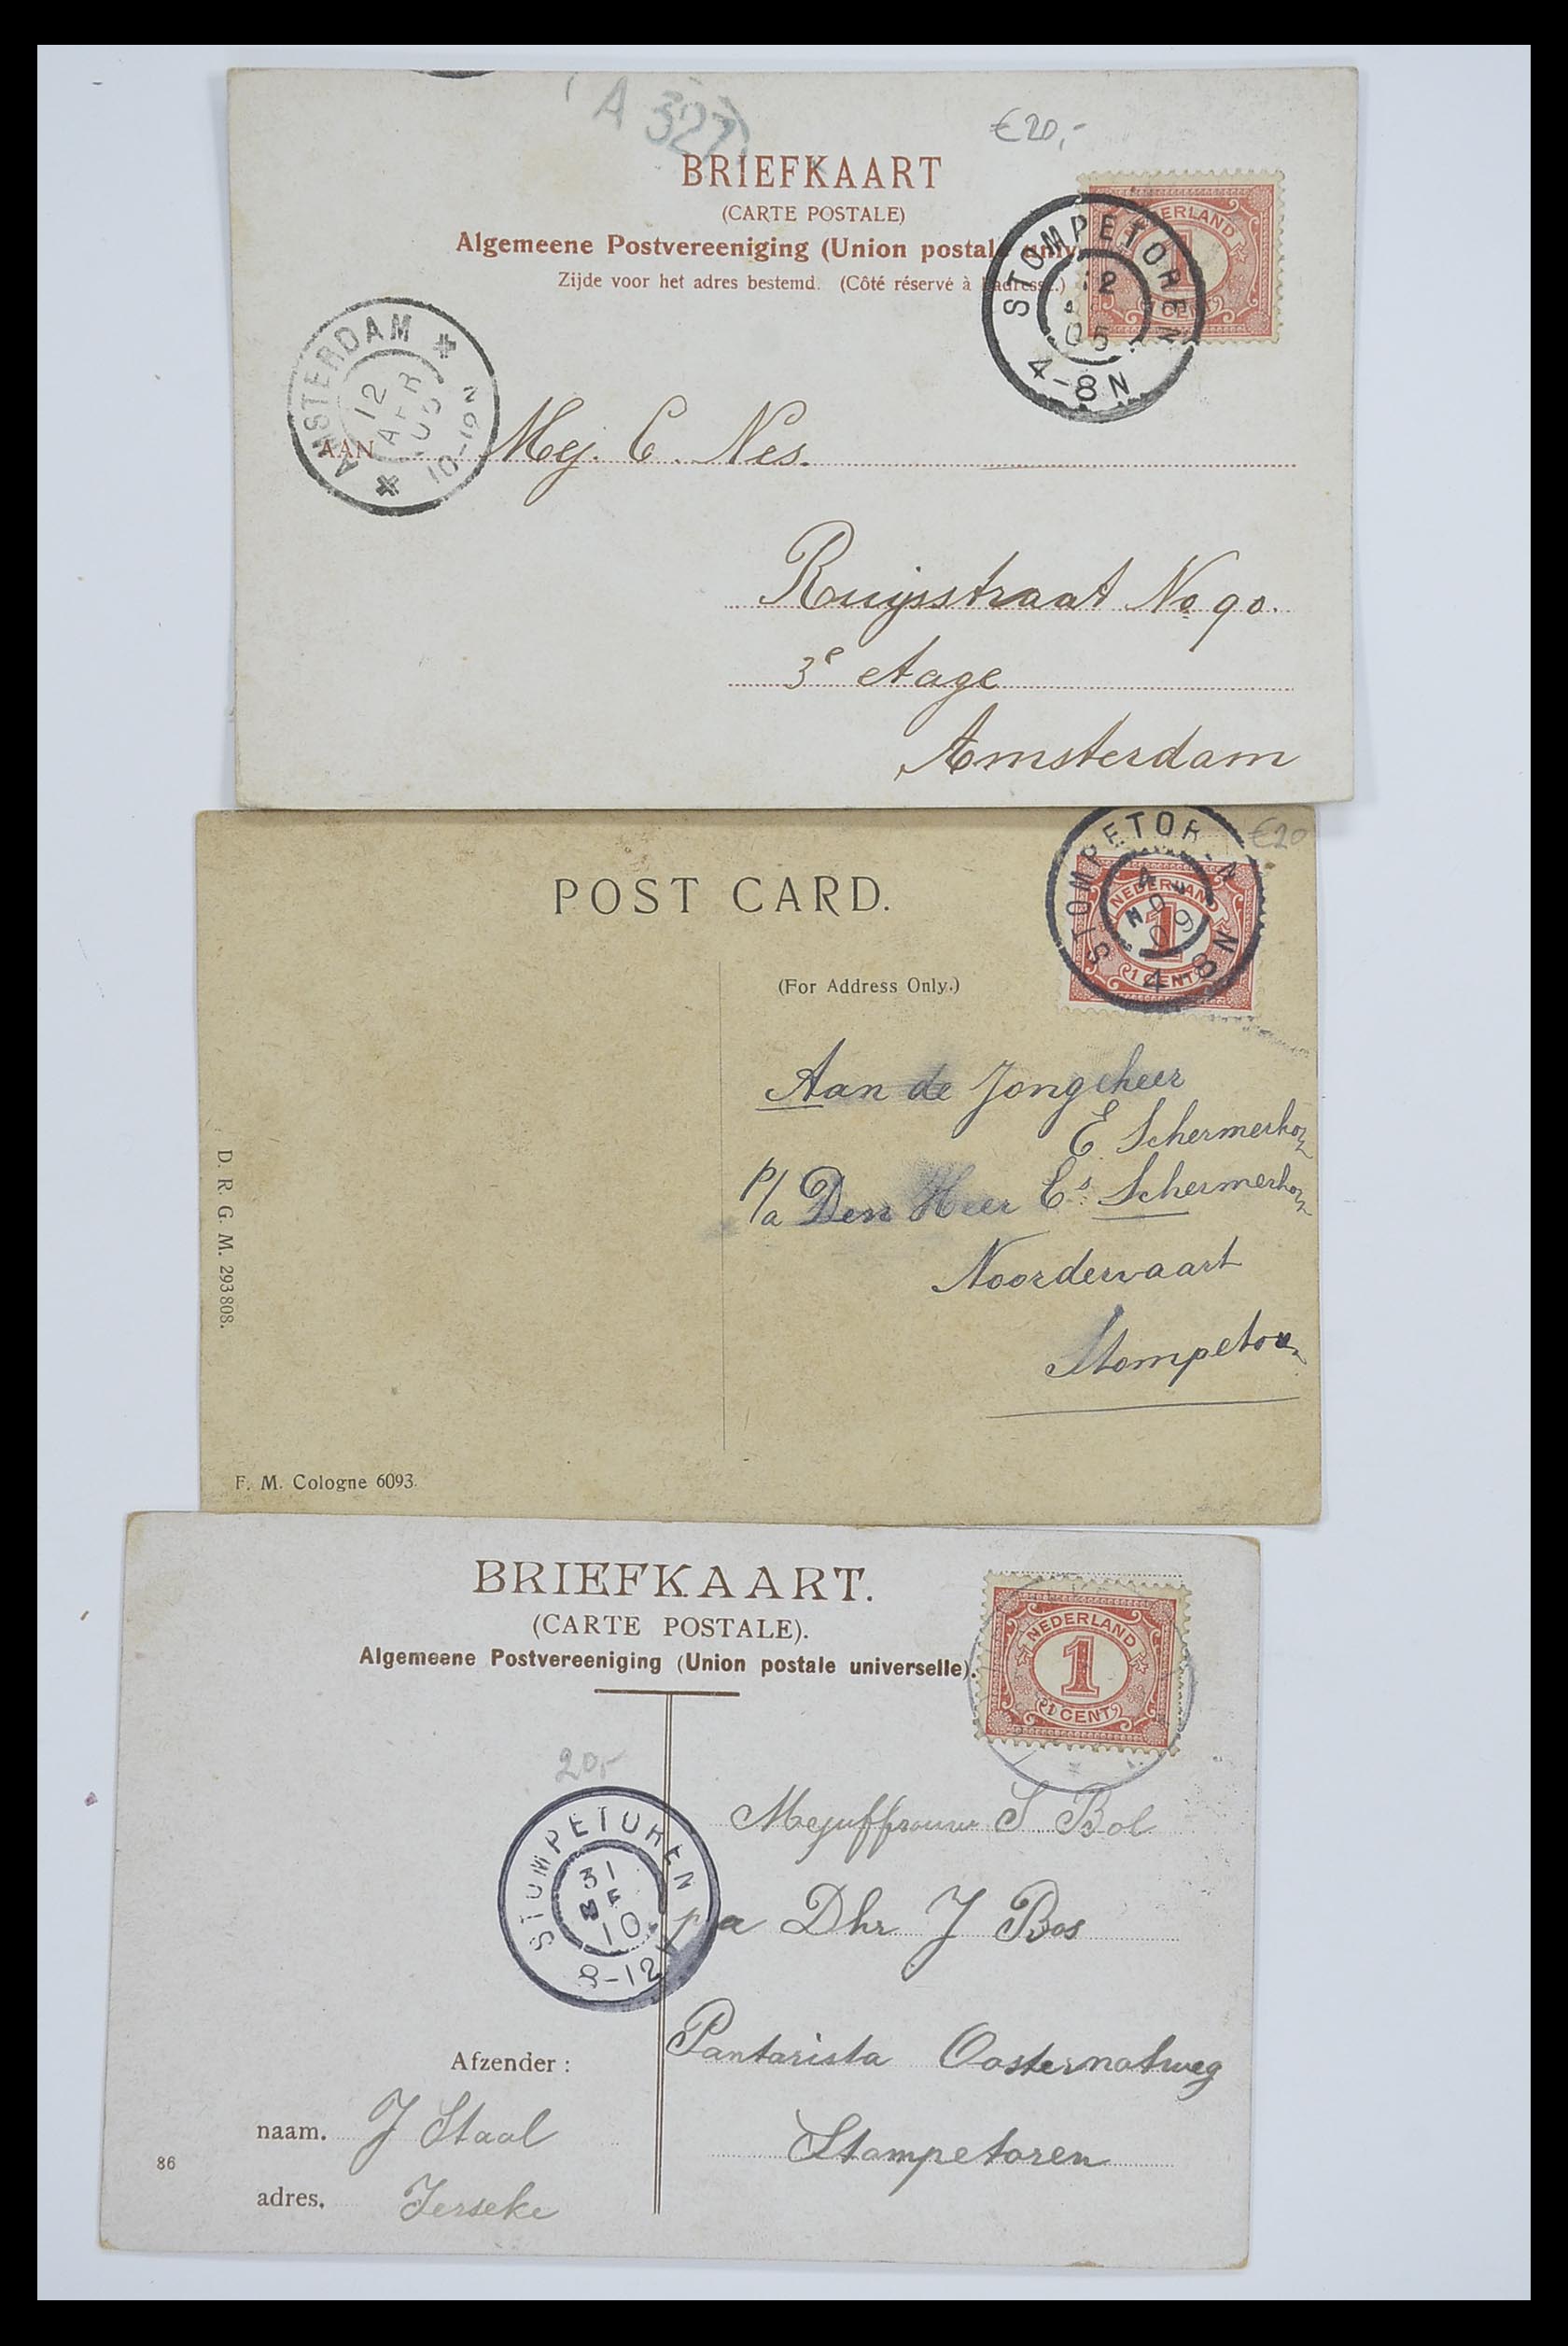 A 327
€20,-
BRIEFKAART
(CARTE POSTALE)
Algemeene Postvereeniging (Union postale univ
Zijde voor het adres bestemd. (Côté réservé à l'adresse.)
NEDERLAND
1
STOMPETOREN
12
05
4-8N
AMSTERDAM
12
APR
05
10-12N
AAN Mej. C. Nes.
Ruijsstraat No 90.
3e etage
Amsterdam
€20
STOMPETOREN
4
09
4-8N
NEDERLAND
1
1 CENT
POST CARD.
(For Address Only.)
Aan de Jongeheer
E Schermerhorn
p/a Den Heer Cs. Schermerhorn
Noordervaart
Stompetoren
D. R. G. M. 293808.
F. M. Cologne 6093.
BRIEFKAART.
(CARTE POSTALE).
Algemeene Postvereeniging (Union postale universelle).
NEDERLAND
1
1 CENT
20,-
STOMPETOREN
31
10
8-12V
Mejuffrouw S Bol
p a Dhr J Bos
Pantarista Oosternatweg
Stompetoren
Afzender:
naam. J Staal
86
adres. Jerseke